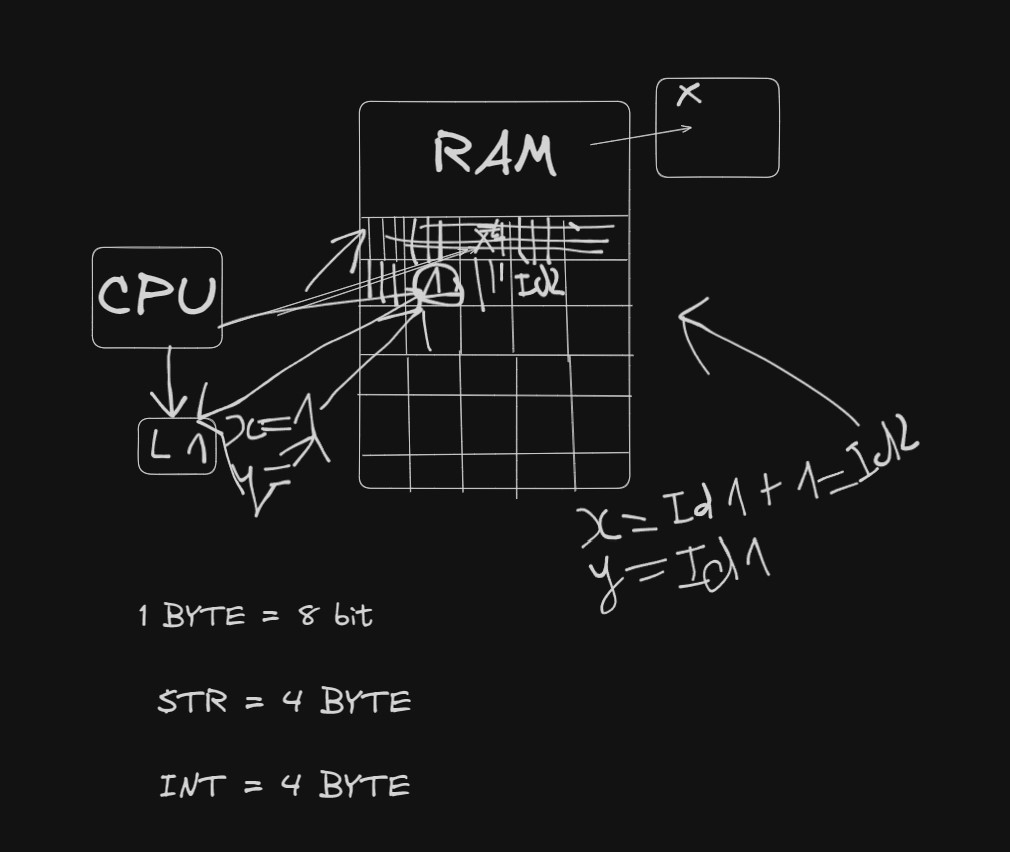 x
RAM
CPU
1
Id2
L 1
x=1
y=
x=Id1+1=Id2
y=Id1
1 BYTE = 8 bit
STR = 4 BYTE
INT = 4 BYTE